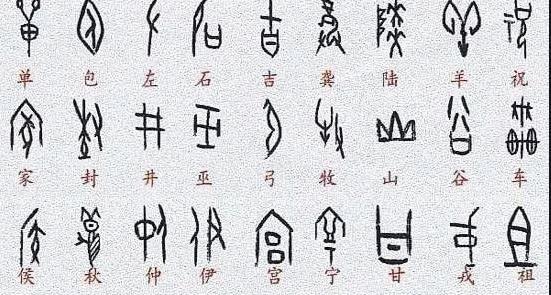 单 包 左 石 吉 龚 陆 羊 祝
家 封 井 巫 弓 牧 山 谷 车
侯 秋 仲 伊 宫 宁 甘 戎 祖